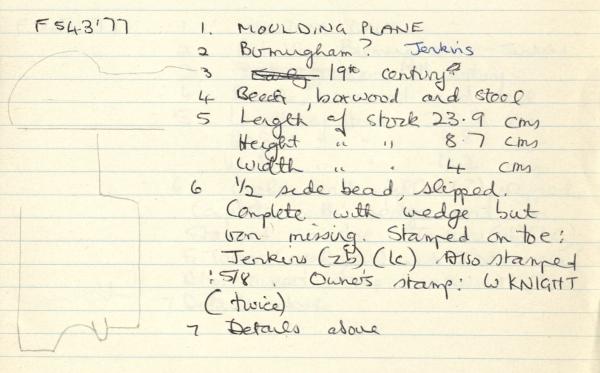 F54.3'77
1. MOULDING PLANE
2 Birmingham? Jenkins
3 Early 19th century?
4 Beech, boxwood and steel
5 Length of stock 23.9 cms
Height " " 8.7 cms
Width " " 4 cms
6 1/2 side bead, slipped.
Complete with wedge but
iron missing. Stamped on toe:
Jenkins (2b) (1c) Also stamped
:5/8. Owner's stamp: W KNIGHT
(twice)
7 Details above